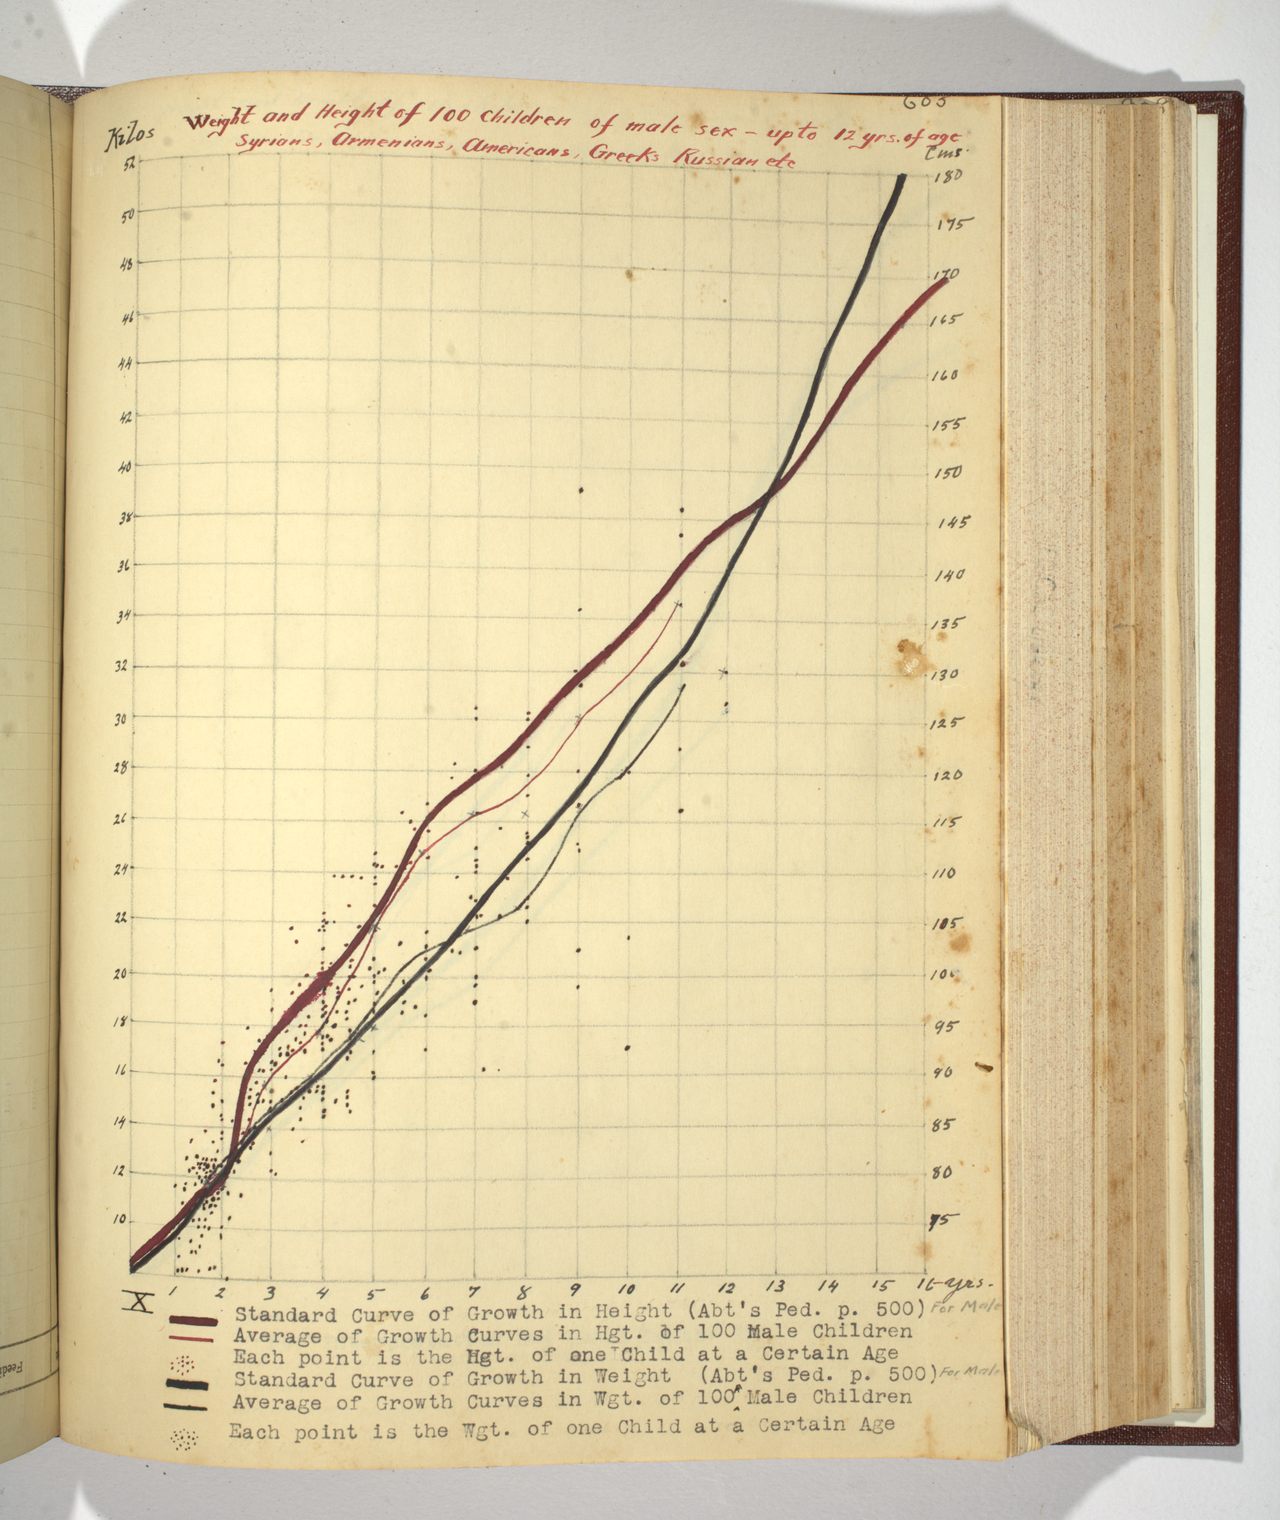 603
Weight and Height of 100 Children of male sex – up to 12 yrs. of age
Syrians, Armenians, Americans, Greeks Russian etc
Kilos
Cms.
52
50
48
46
44
42
40
38
36
34
32
30
28
26
24
22
20
18
16
14
12
10
180
175
170
165
160
155
150
145
140
135
130
125
120
115
110
105
100
95
90
85
80
75
X 1 2 3 4 5 6 7 8 9 10 11 12 13 14 15 16 yrs.
Standard Curve of Growth in Height (Abt's Ped. p. 500) For Male
Average of Growth Curves in Hgt. of 100 Male Children
Each point is the Hgt. of one Child at a Certain Age
Standard Curve of Growth in Weight (Abt's Ped. p. 500) For Male
Average of Growth Curves in Wgt. of 100 Male Children
Each point is the Wgt. of one Child at a Certain Age